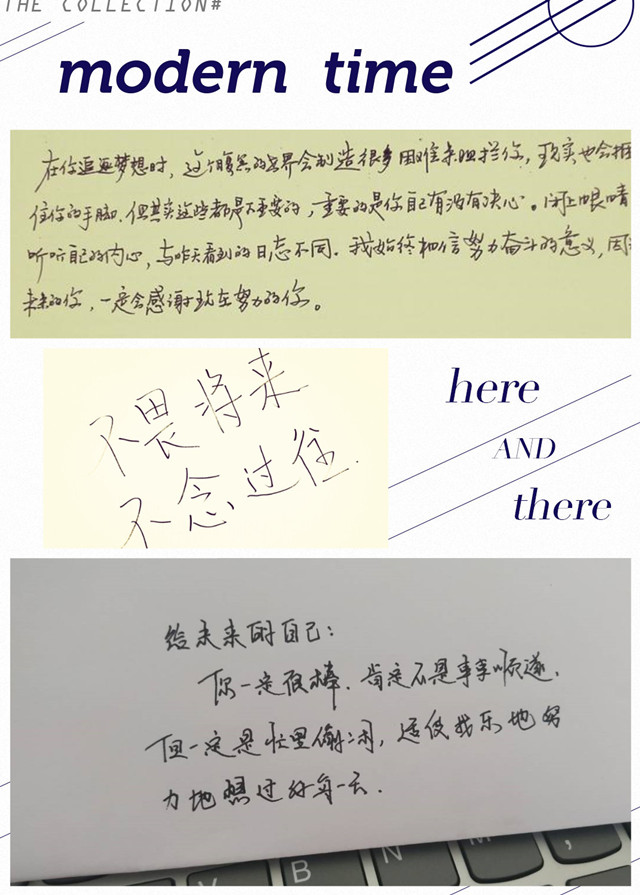 THE COLLECTION#
modern time
在你追逐梦想时，这个腹黑的世界会制造很多困难来阻拦你，现实也会捆
住你的手脚．但其实这些都是不重要的，重要的是你自己有没有决心。闭上眼睛
听听自己的内心，与昨天看到的日志不同．我始终相信努力奋斗的意义，因
未来的你，一定会感谢现在努力的你。
不畏将来
不念过往．
here
AND
there
给未来的自己：
你一定很棒．肯定不是事事顺遂．
但一定是忙里偷闲，适度娱乐地努
力地想过好每一天．
V B N M ,